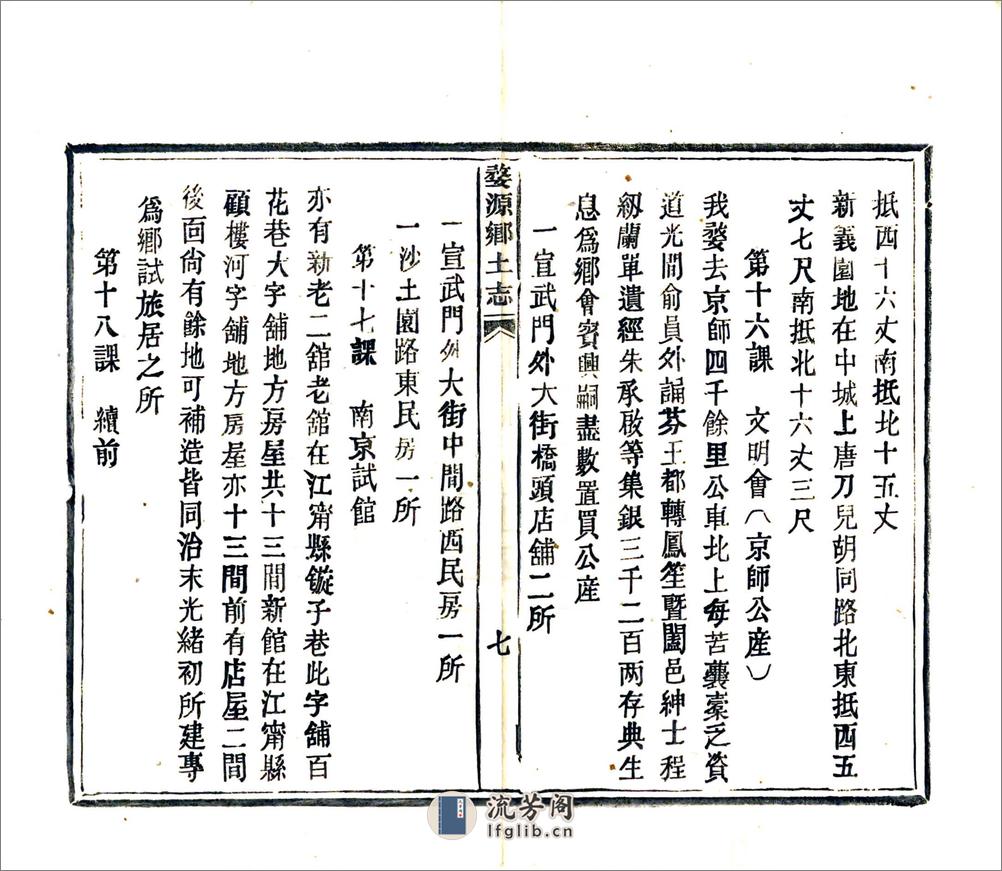 抵西十六丈南抵北十五丈
新義園地在中城上唐刀兒胡同路北東抵西五
丈七尺南抵北十六丈三尺
第十六課　文明會（京師公産）
我婺去京師四千餘里公車北上每苦囊橐乏資
道光間俞員外誦芬王都轉鳳笙暨闔邑紳士程
烱蘭單遺經朱承啟等集銀三千二百两存典生
息爲鄉會賓興嗣盡數置買公産
一宣武門外大街橋頭店舖二所
婺源鄉土志
七
一宣武門外大街中間路西民房一所
一沙土園路東民房一所
第十七課　南京試館
亦有新老二舘老舘在江甯縣鏇子巷此字舖百
花巷大字舖地方房屋共十三間新館在江甯縣
顧樓河字舖地方房屋亦十三間前有店屋二間
後面尙有餘地可補造皆同治末光緒初所建專
爲鄉試旅居之所
第十八課　續前
流芳阁
lfglib.cn